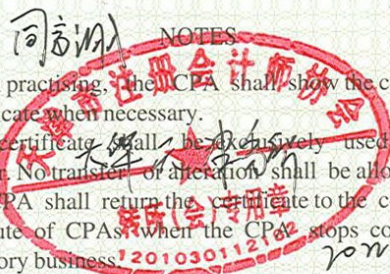 同意调入
NOTES
practising, the CPA shall show the c
icate when necessary.
certificate shall be exclusively used
r. No transfer or alteration shall be allo
CPA shall return the certificate to the c
ute of CPAs when the CPA stops co
ory business.
天津市注册会计师协会
转所(会)专用章
1201030112102